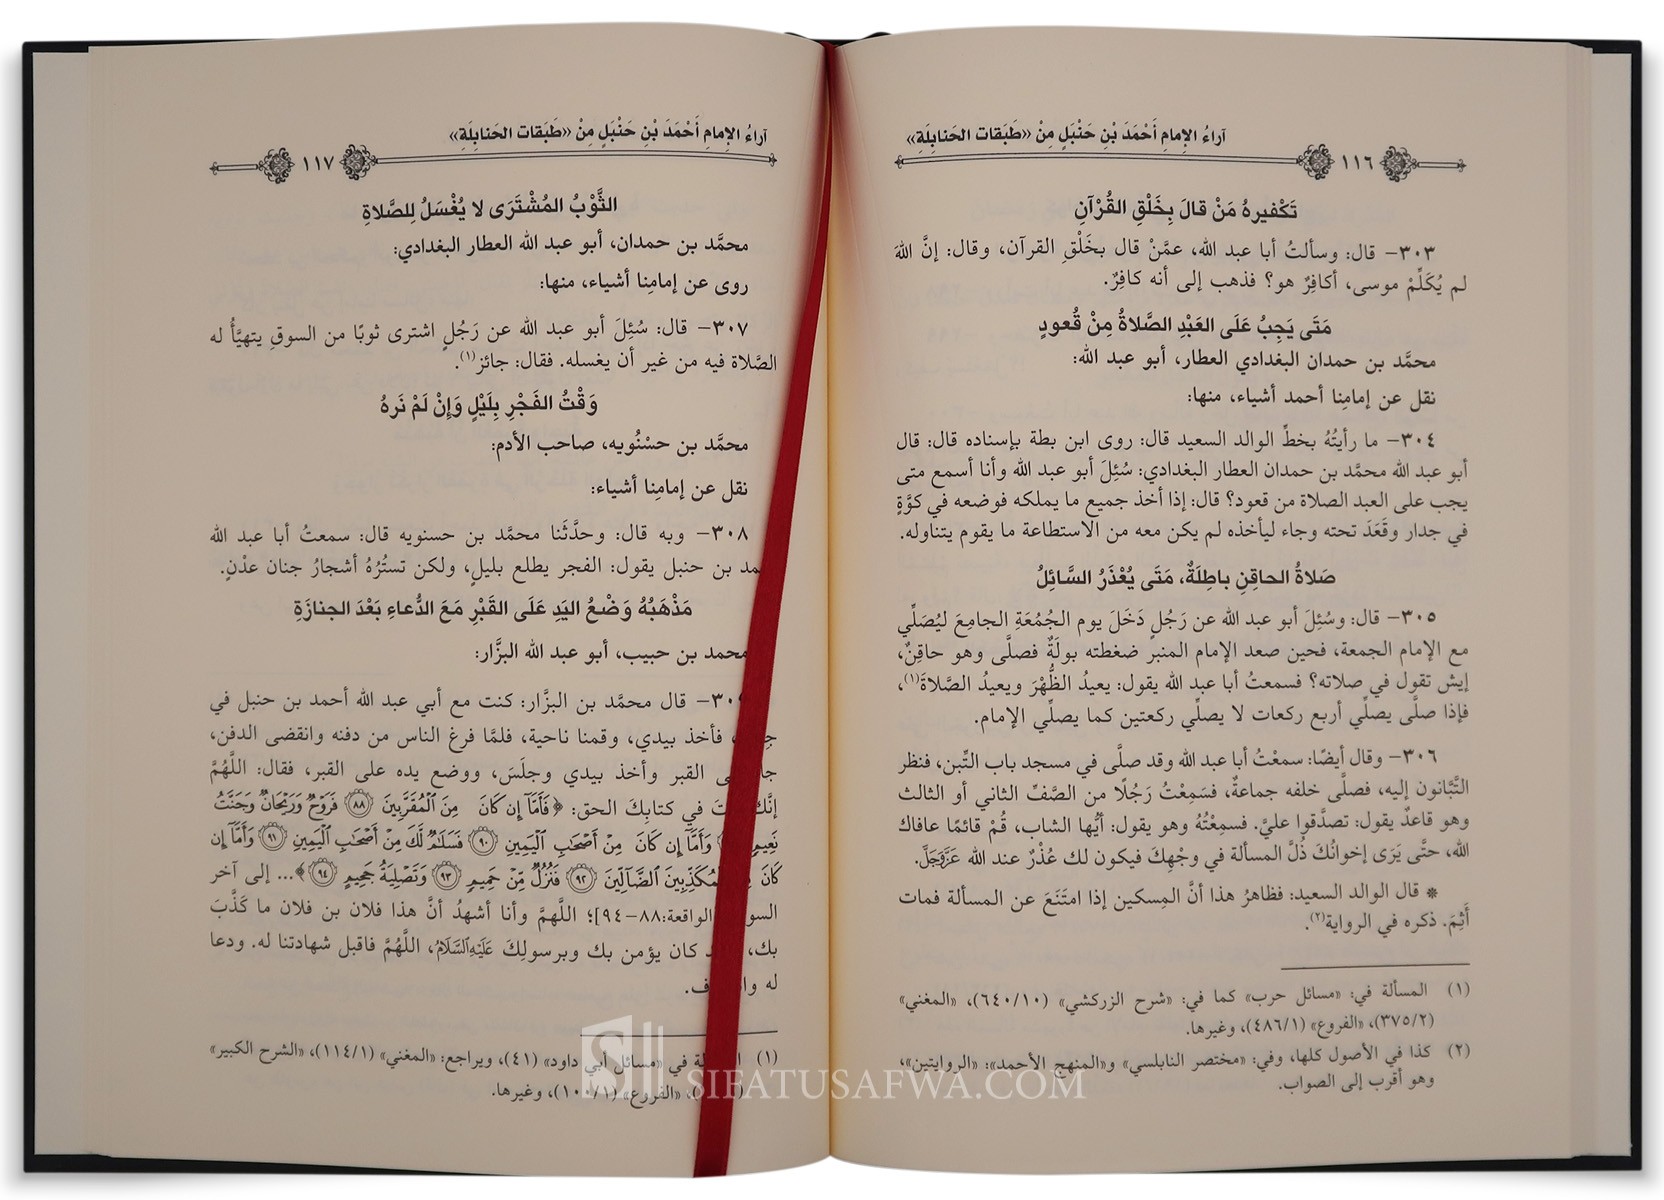 آراءُ الإمامِ أَحْمَدَ بْنِ حَنْبَلٍ مِنْ «طَبَقات الحَنابِلَةِ»
١١٦
تَكْفيرهُ مَنْ قالَ بِخَلْقِ القُرْآنِ
٣٠٣- قال: وسألتُ أبا عبد الله، عمَّنْ قال بخَلْقِ القرآن، وقال: إنَّ اللهَ
لم يُكَلِّمْ موسى، أكافِرٌ هو؟ فذهب إلى أنه كافِرٌ.
مَتَى يَجِبُ عَلَى العَبْدِ الصَّلاةُ مِنْ قُعودٍ
محمَّد بن حمدان البغدادي العطار، أبو عبد الله:
نقل عن إمامِنا أحمد أشياء، منها:
٣٠٤- ما رأيتُهُ بخطِّ الوالد السعيد قال: روى ابن بطة بإسناده قال: قال
أبو عبد الله محمَّد بن حمدان العطار البغدادي: سُئِلَ أبو عبد الله وأنا أسمع متى
يجب على العبد الصلاة من قعود؟ قال: إذا أخذ جميع ما يملكه فوضعه في كوَّةٍ
في جدار وقَعَدَ تحته وجاء ليأخذه لم يكن معه من الاستطاعة ما يقوم يتناوله.
صَلاةُ الحاقِنِ باطِلَةٌ، مَتَى يُعْذَرُ السَّائِلُ
٣٠٥- قال: وسُئِلَ أبو عبد الله عن رَجُلٍ دَخَلَ يوم الجُمُعَةِ الجامِعَ ليُصَلِّي
مع الإمام الجمعة، فحين صعد الإمام المنبر ضغطته بولَةٌ فصلَّى وهو حاقِنٌ،
إيش تقول في صلاته؟ فسمعتُ أبا عبد الله يقول: يعيدُ الظُّهْرَ ويعيدُ الصَّلاةَ(١)،
فإذا صلَّى يصلِّي أربع ركعات لا يصلِّي ركعتين كما يصلِّي الإمام.
٣٠٦- وقال أيضًا: سمعْتُ أبا عبد الله وقد صلَّى في مسجد باب التِّبن، فنظر
التَّبَّانون إليه، فصلَّى خلفه جماعةٌ، فسَمِعْتُ رَجُلًا من الصَّفِّ الثاني أو الثالث
وهو قاعدٌ يقول: تصدَّقوا عليَّ. فسمِعْتُهُ وهو يقول: أيُّها الشاب، قُمْ قائمًا عافاك
الله، حتَّى يَرَى إخوانُكَ ذُلَّ المسألة في وجْهِكَ فيكون لك عُذْرٌ عند الله عَزَّوَجَلَّ.
* قال الوالد السعيد: فظاهرُ هذا أنَّ المِسكين إذا امتَنَعَ عن المسألة فمات
أَثِمَ. ذكره في الرواية(٢).
(١) المسألة في: «مسائل حرب» كما في: «شرح الزركشي» (٦٤٠/١٠)، «المغني»
(٣٧٥/٢)، «الفروع» (٤٨٦/١)، وغيرها.
(٢) كذا في الأصول كلها، وفي: «مختصر النابلسي» و«المنهج الأحمد»: «الروايتين»،
وهو أقرب إلى الصواب.
آراءُ الإمامِ أَحْمَدَ بْنِ حَنْبَلٍ مِنْ «طَبَقات الحَنابِلَةِ»
١١٧
الثَّوْبُ المُشْتَرَى لا يُغْسَلُ لِلصَّلاةِ
محمَّد بن حمدان، أبو عبد الله العطار البغدادي:
روى عن إمامِنا أشياء، منها:
٣٠٧- قال: سُئِلَ أبو عبد الله عن رَجُلٍ اشترى ثوبًا من السوقِ يتهيَّأُ له
الصَّلاة فيه من غير أن يغسله. فقال: جائز(١).
وَقْتُ الفَجْرِ بِلَيْلٍ وَإِنْ لَمْ نَرهُ
محمَّد بن حسْنُويه، صاحب الأدم:
نقل عن إمامِنا أشياء:
٣٠٨- وبه قال: وحدَّثَنا محمَّد بن حسنويه قال: سمعتُ أبا عبد الله
بن حنبل يقول: الفجر يطلع بليلٍ، ولكن تستُرُهُ أشجارُ جنان عدْنٍ.
مَذْهَبُهُ وَضْعُ اليَدِ عَلَى القَبْرِ مَعَ الدُّعاءِ بَعْدَ الجنازَةِ
محمد بن حبيب، أبو عبد الله البزَّار:
قال محمَّد بن البزَّار: كنت مع أبي عبد الله أحمد بن حنبل في
فأخذ بيدي، وقمنا ناحية، فلمَّا فرغ الناس من دفنه وانقضى الدفن،
القبر وأخذ بيدي وجلَسَ، ووضع يده على القبر، فقال: اللَّهُمَّ
في كتابِكَ الحق: ﴿فَأَمَّآ إِن كَانَ مِنَ ٱلْمُقَرَّبِينَ ٨٨ فَرَوْحٌ وَرَيْحَانٌ وَجَنَّتُ
نَعِيمٍ وَأَمَّآ إِن كَانَ مِنْ أَصْحَٰبِ ٱلْيَمِينِ ٩٠ فَسَلَٰمٌ لَّكَ مِنْ أَصْحَٰبِ ٱلْيَمِينِ ٩١ وَأَمَّآ إِن
كَانَ ٱلْمُكَذِّبِينَ ٱلضَّآلِّينَ ٩٢ فَنُزُلٌ مِّنْ حَمِيمٍ ٩٣ وَتَصْلِيَةُ جَحِيمٍ ٩٤﴾... إلى آخر
الواقعة:٨٨-٩٤]؛ اللَّهمَّ وأنا أشهدُ أنَّ هذا فلان بن فلان ما كَذَّبَ
بك، كان يؤمن بك وبرسولِكَ عَلَيْهِ السَّلَامُ، اللَّهُمَّ فاقبل شهادتنا له. ودعا
له
(١) في «مسائل أبي داود» (٤١)، ويراجع: «المغني» (١١٤/١)، «الشرح الكبير»
«الفروع» (١٠٠/١)، وغيرها.
SIFATUSAFWA.COM